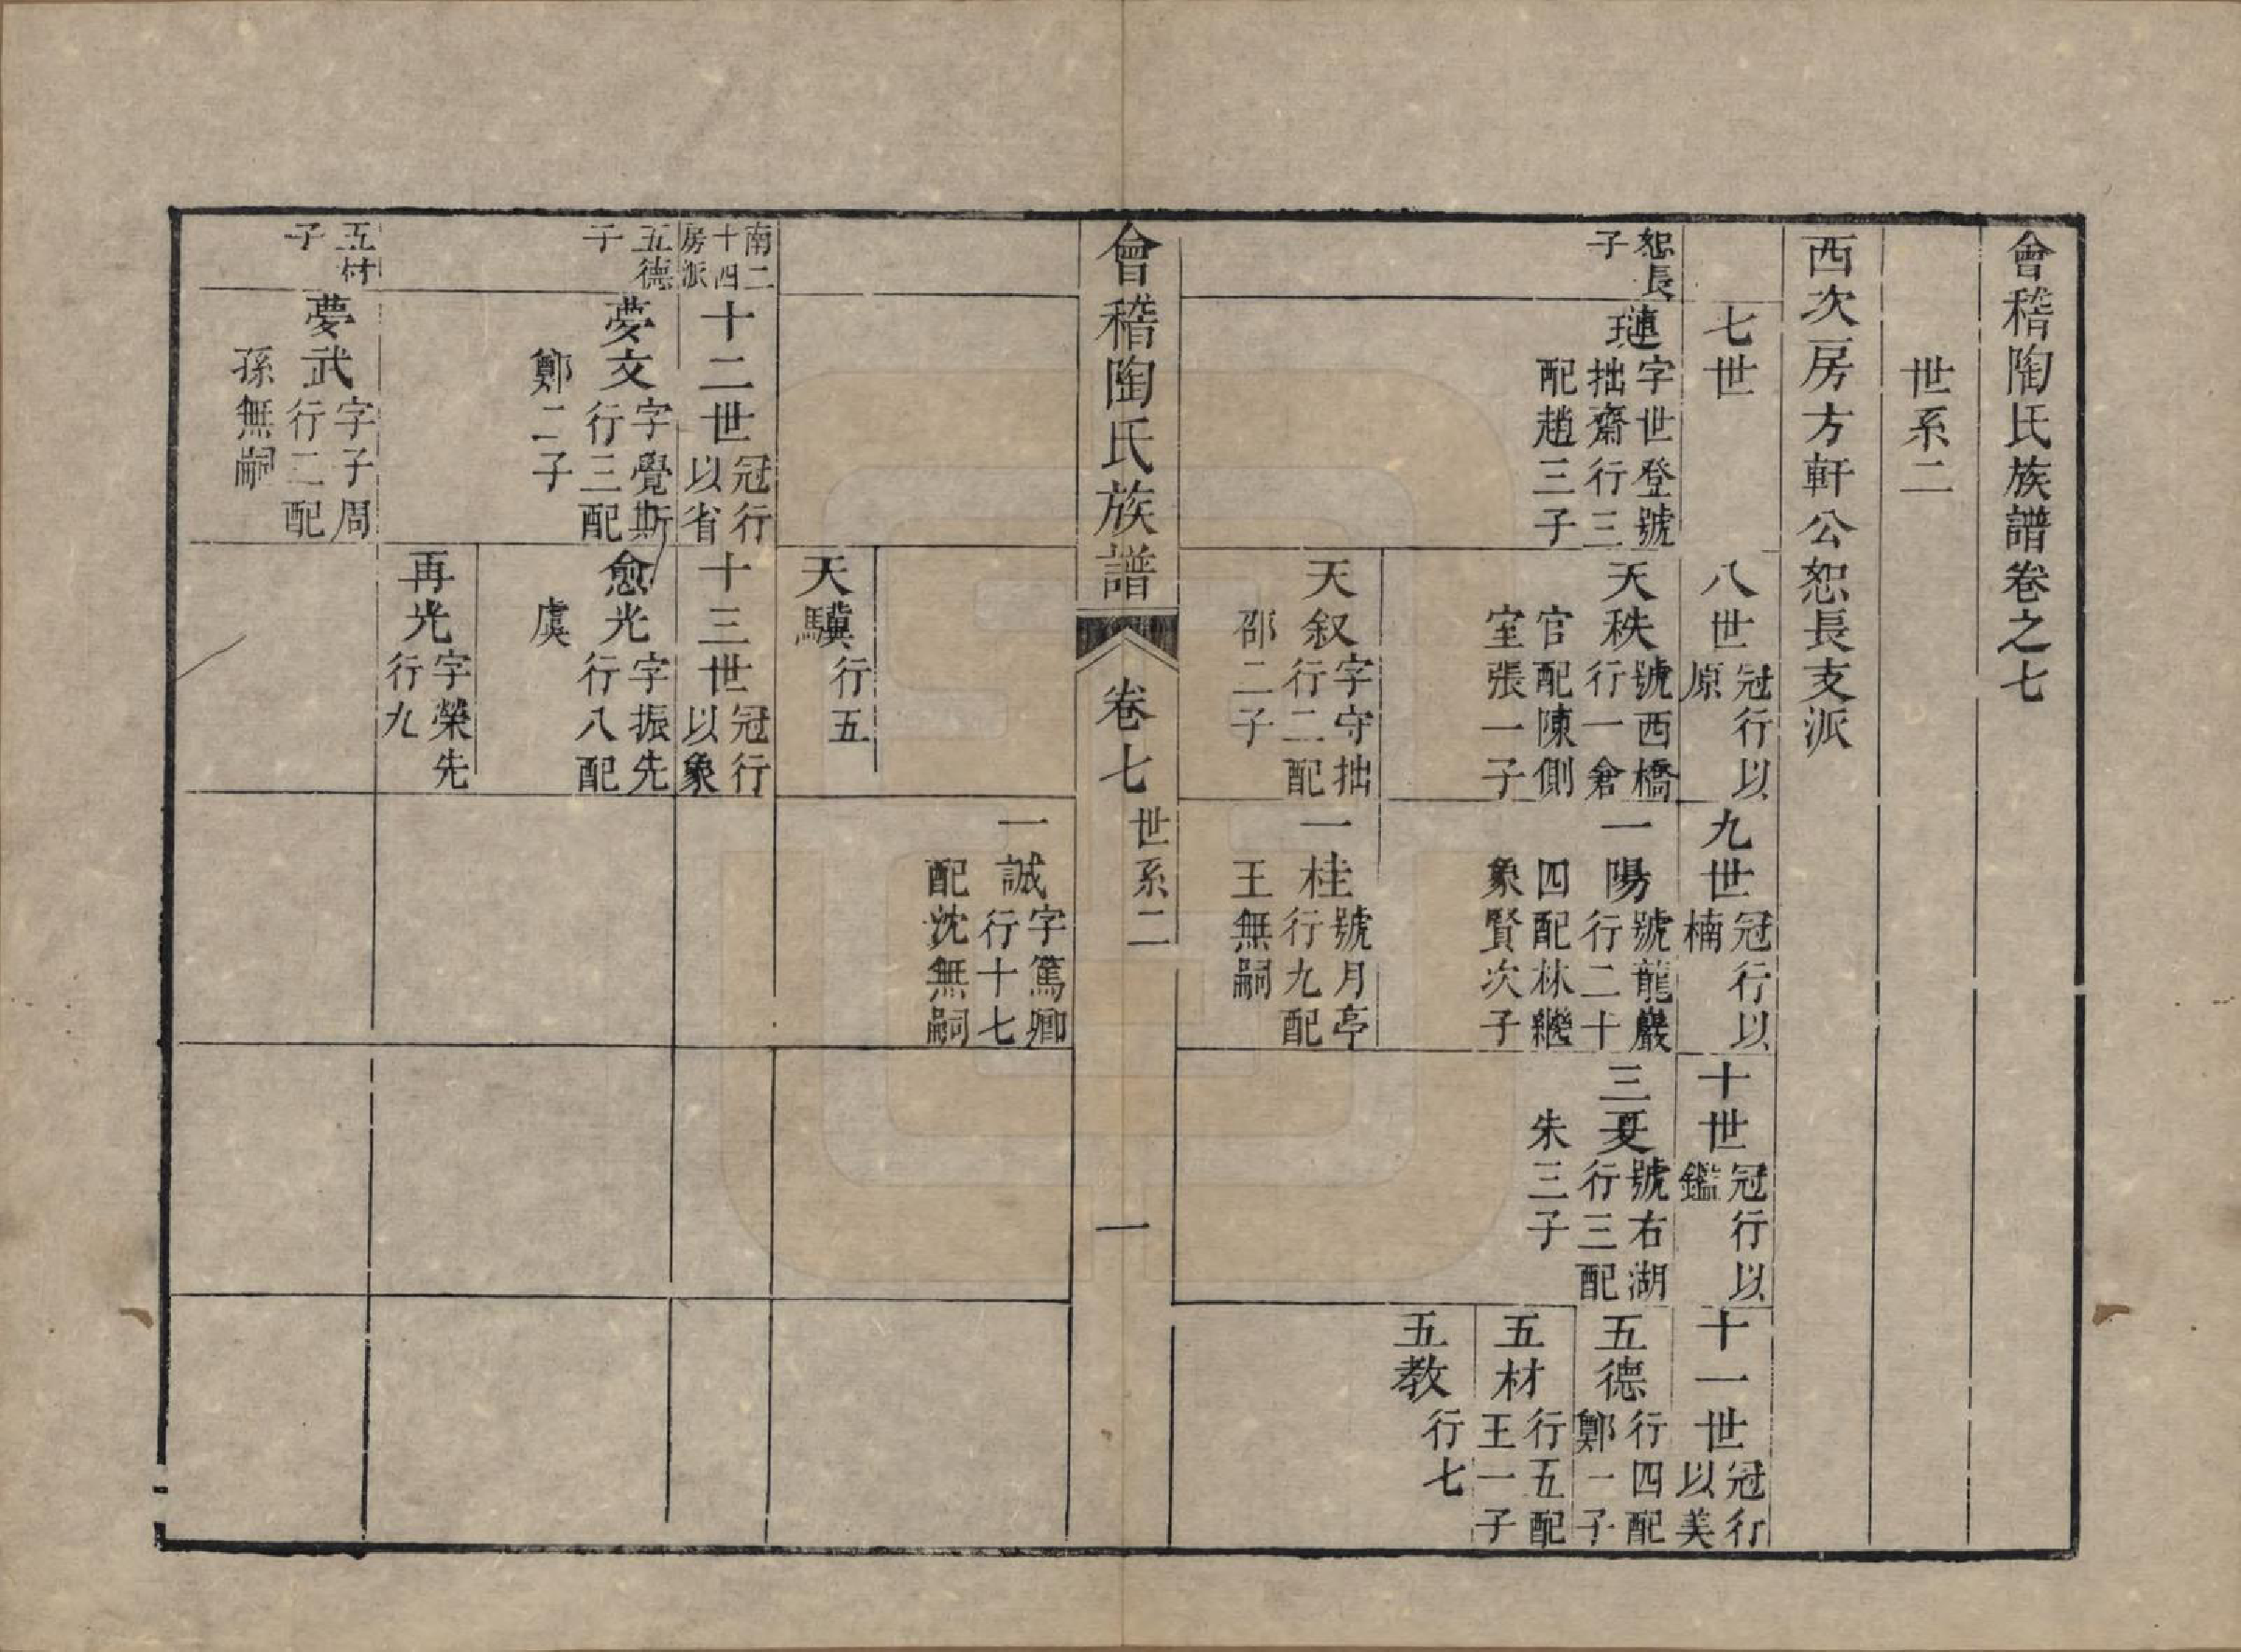 會稽陶氏族譜卷之七
世系二
西次房方軒公恕長支派
七世
八世冠行以原
九世冠行以楠
十世冠行以鑑
十一世冠行以美
恕長子
璉字世登號拙齋行三配趙三子
天秩號西橋行一倉官配陳側室張一子
一陽號龍巖行二十四配林繼象賢次子
三夏號右湖行三配朱三子
五德行四配鄭一子
五材行五配王一子
五教行七
天叙字守拙行二配邵二子
一桂號月亭行九配王無嗣
會稽陶氏族譜
卷七
世系二
一
一誠字篤卿行十七配沈無嗣
天驥行五
南二十四房派
十二世冠行以省
十三世冠行以象
五德子
夢文字覺斯行三配鄭二子
愈光字振先行八配虞
再光字榮先行九
五材子
夢武字子周行二配孫無嗣